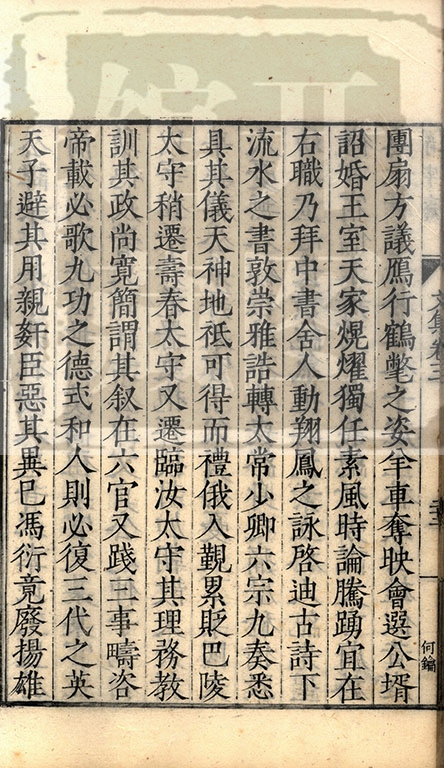 團扇方議鴈行鶴氅之姿羊車奪映會選公壻
詔婚王室天家熀燿獨任素風時論騰踴宜在
右職乃拜中書舍人動翔鳳之詠啓迪古詩下
流水之書敦崇雅誥轉太常少卿六宗九奏悉
具其儀天神地祗可得而禮俄入覲累貶巴陵
太守稍遷壽春太守又遷臨汝太守其理務教
訓其政尚寛簡謂其叙在六官又踐三事疇咨
帝載必歌九功之德式和人則必復三代之英
天子避其用親奸臣惡其異已馮衍竟廢揚雄